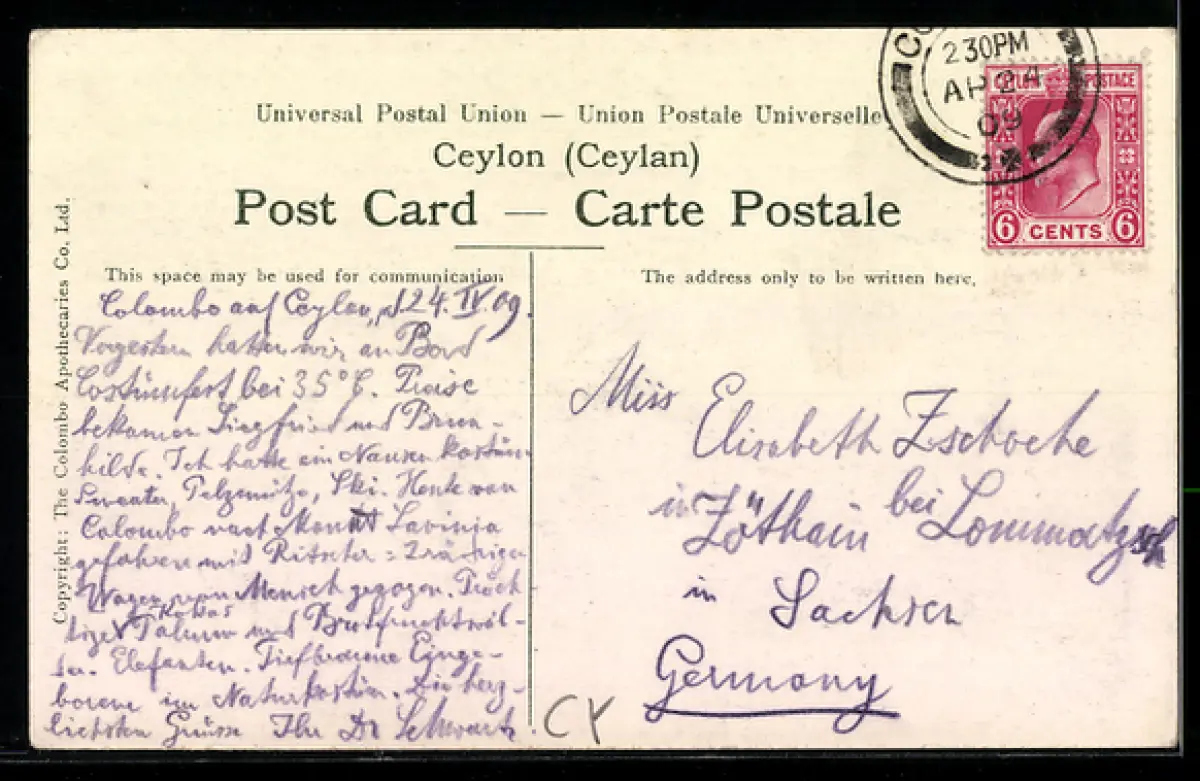 Universal Postal Union — Union Postale Universelle
Ceylon (Ceylan)
Post Card — Carte Postale
CEYLON POSTAGE
6 CENTS 6
2 30PM
AP 24
09
Copyright: The Colombo Apothecaries Co. Ltd.
This space may be used for communication
Colombo auf Ceylon, d 24. IV. 09.
Vorgestern hatten wir an Bord
Costümfest bei 35° C. Preise
bekamen Siegfried und Brun-
hilde. Ich hatte ein Nansen kostüm
Sweater, Pelzmütze, Ski. Heute von
Colombo nach Mount Lavinia
gefahren mit Ritscha = 2 rädrigen
Wagen von Mensch gezogen. Präch
tiger Kokos
Palmen und Brotfruchtwäl-
der. Elefanten. Tiefbraune Einge-
borene im Naturkostüm. Die herz-
lichsten Grüsse Ihr Dr Schwartz.
The address only to be written here.
Miss
Elisabeth Zschoche
in Zöthain bei Lommatzsch
in Sachsen
Germany
CY